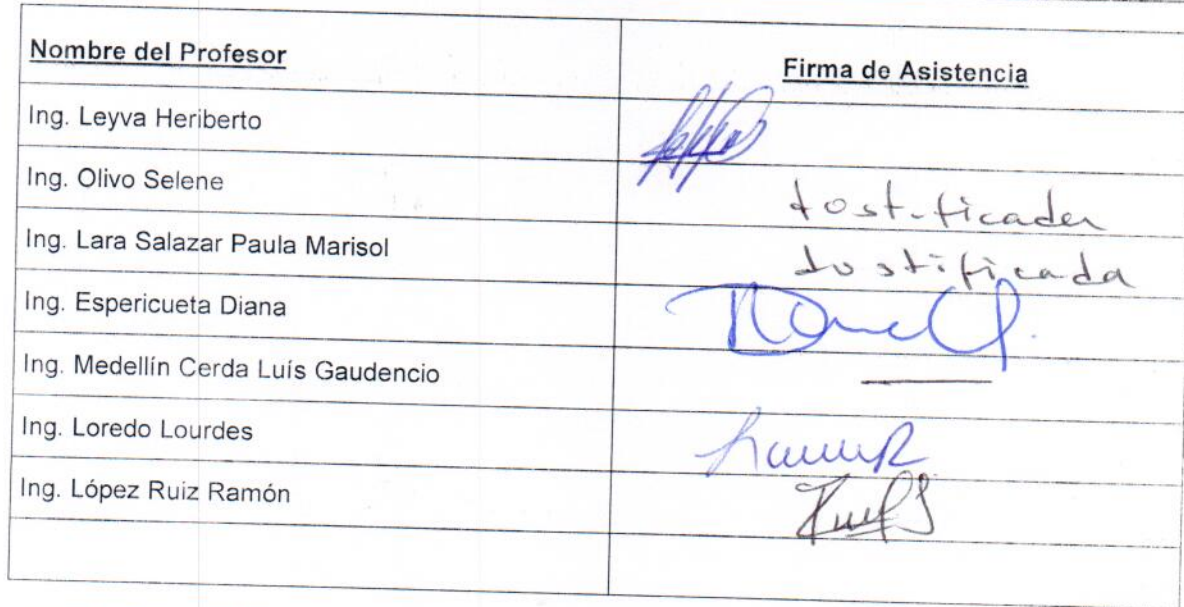 Nombre del Profesor
Firma de Asistencia
Ing. Leyva Heriberto
Ing. Olivo Selene
Justificada
Ing. Lara Salazar Paula Marisol
Justificada
Ing. Espericueta Diana
Ing. Medellín Cerda Luís Gaudencio
Ing. Loredo Lourdes
Ing. López Ruiz Ramón